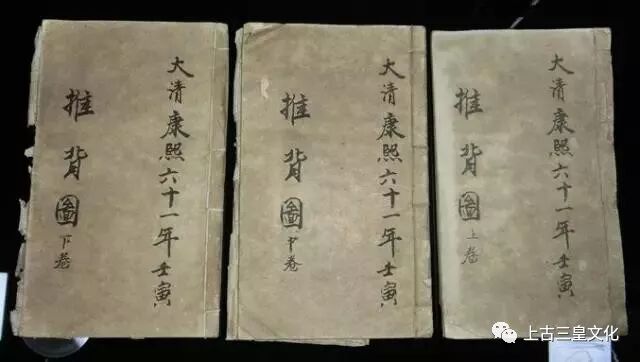 大清康熙六十一年壬寅
推背圖上卷
大清康熙六十一年壬寅
推背圖中卷
大清康熙六十一年壬寅
推背圖下卷
上古三皇文化